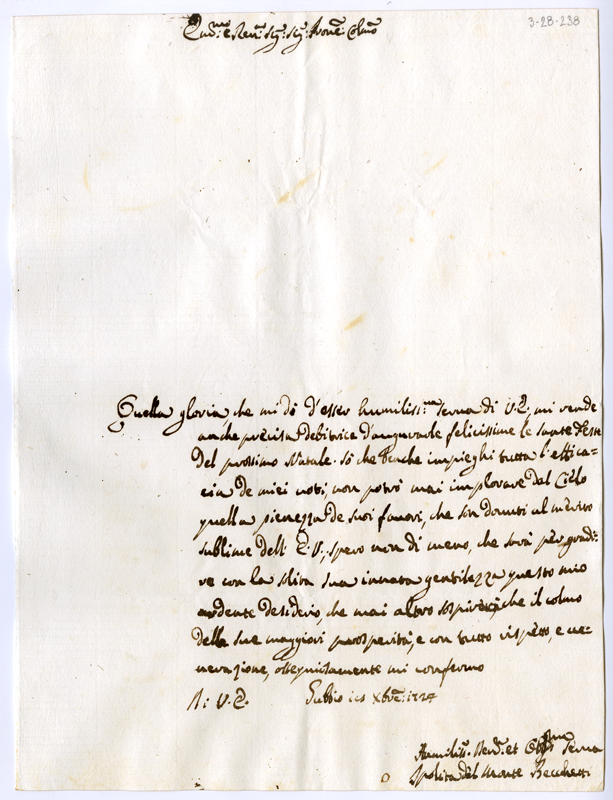 3-28-238
Em:mo e Rev: Sig: Sig: Prone: Colmo
Quella gloria, che mi dò d'esser humiliss:ma serva di V.E., mi rende
anche precisa debitrice d'augurarle felicissime le sante Feste
del prossimo Natale. Sò che benche impieghi tutta l'effica-
cia de miei voti, non potrò mai implorare dal Cielo
quella pienezza de suoi favori, che son dovuti al merito
sublime dell' E.V., spero non di meno, che sarà per gradi-
re con la solita sua innata gentilezza questo mio
ardente desiderio, che mai altro sospirerà, che il colmo
delle sue maggiori prosperità, e con tutto rispetto, e ve-
nerazione, ossequiosamente mi confermo
Di V.E. Gubbio Xbre: 1724
Humiliss: Dev: et Obl:ma Serva
del Monte Becchetti